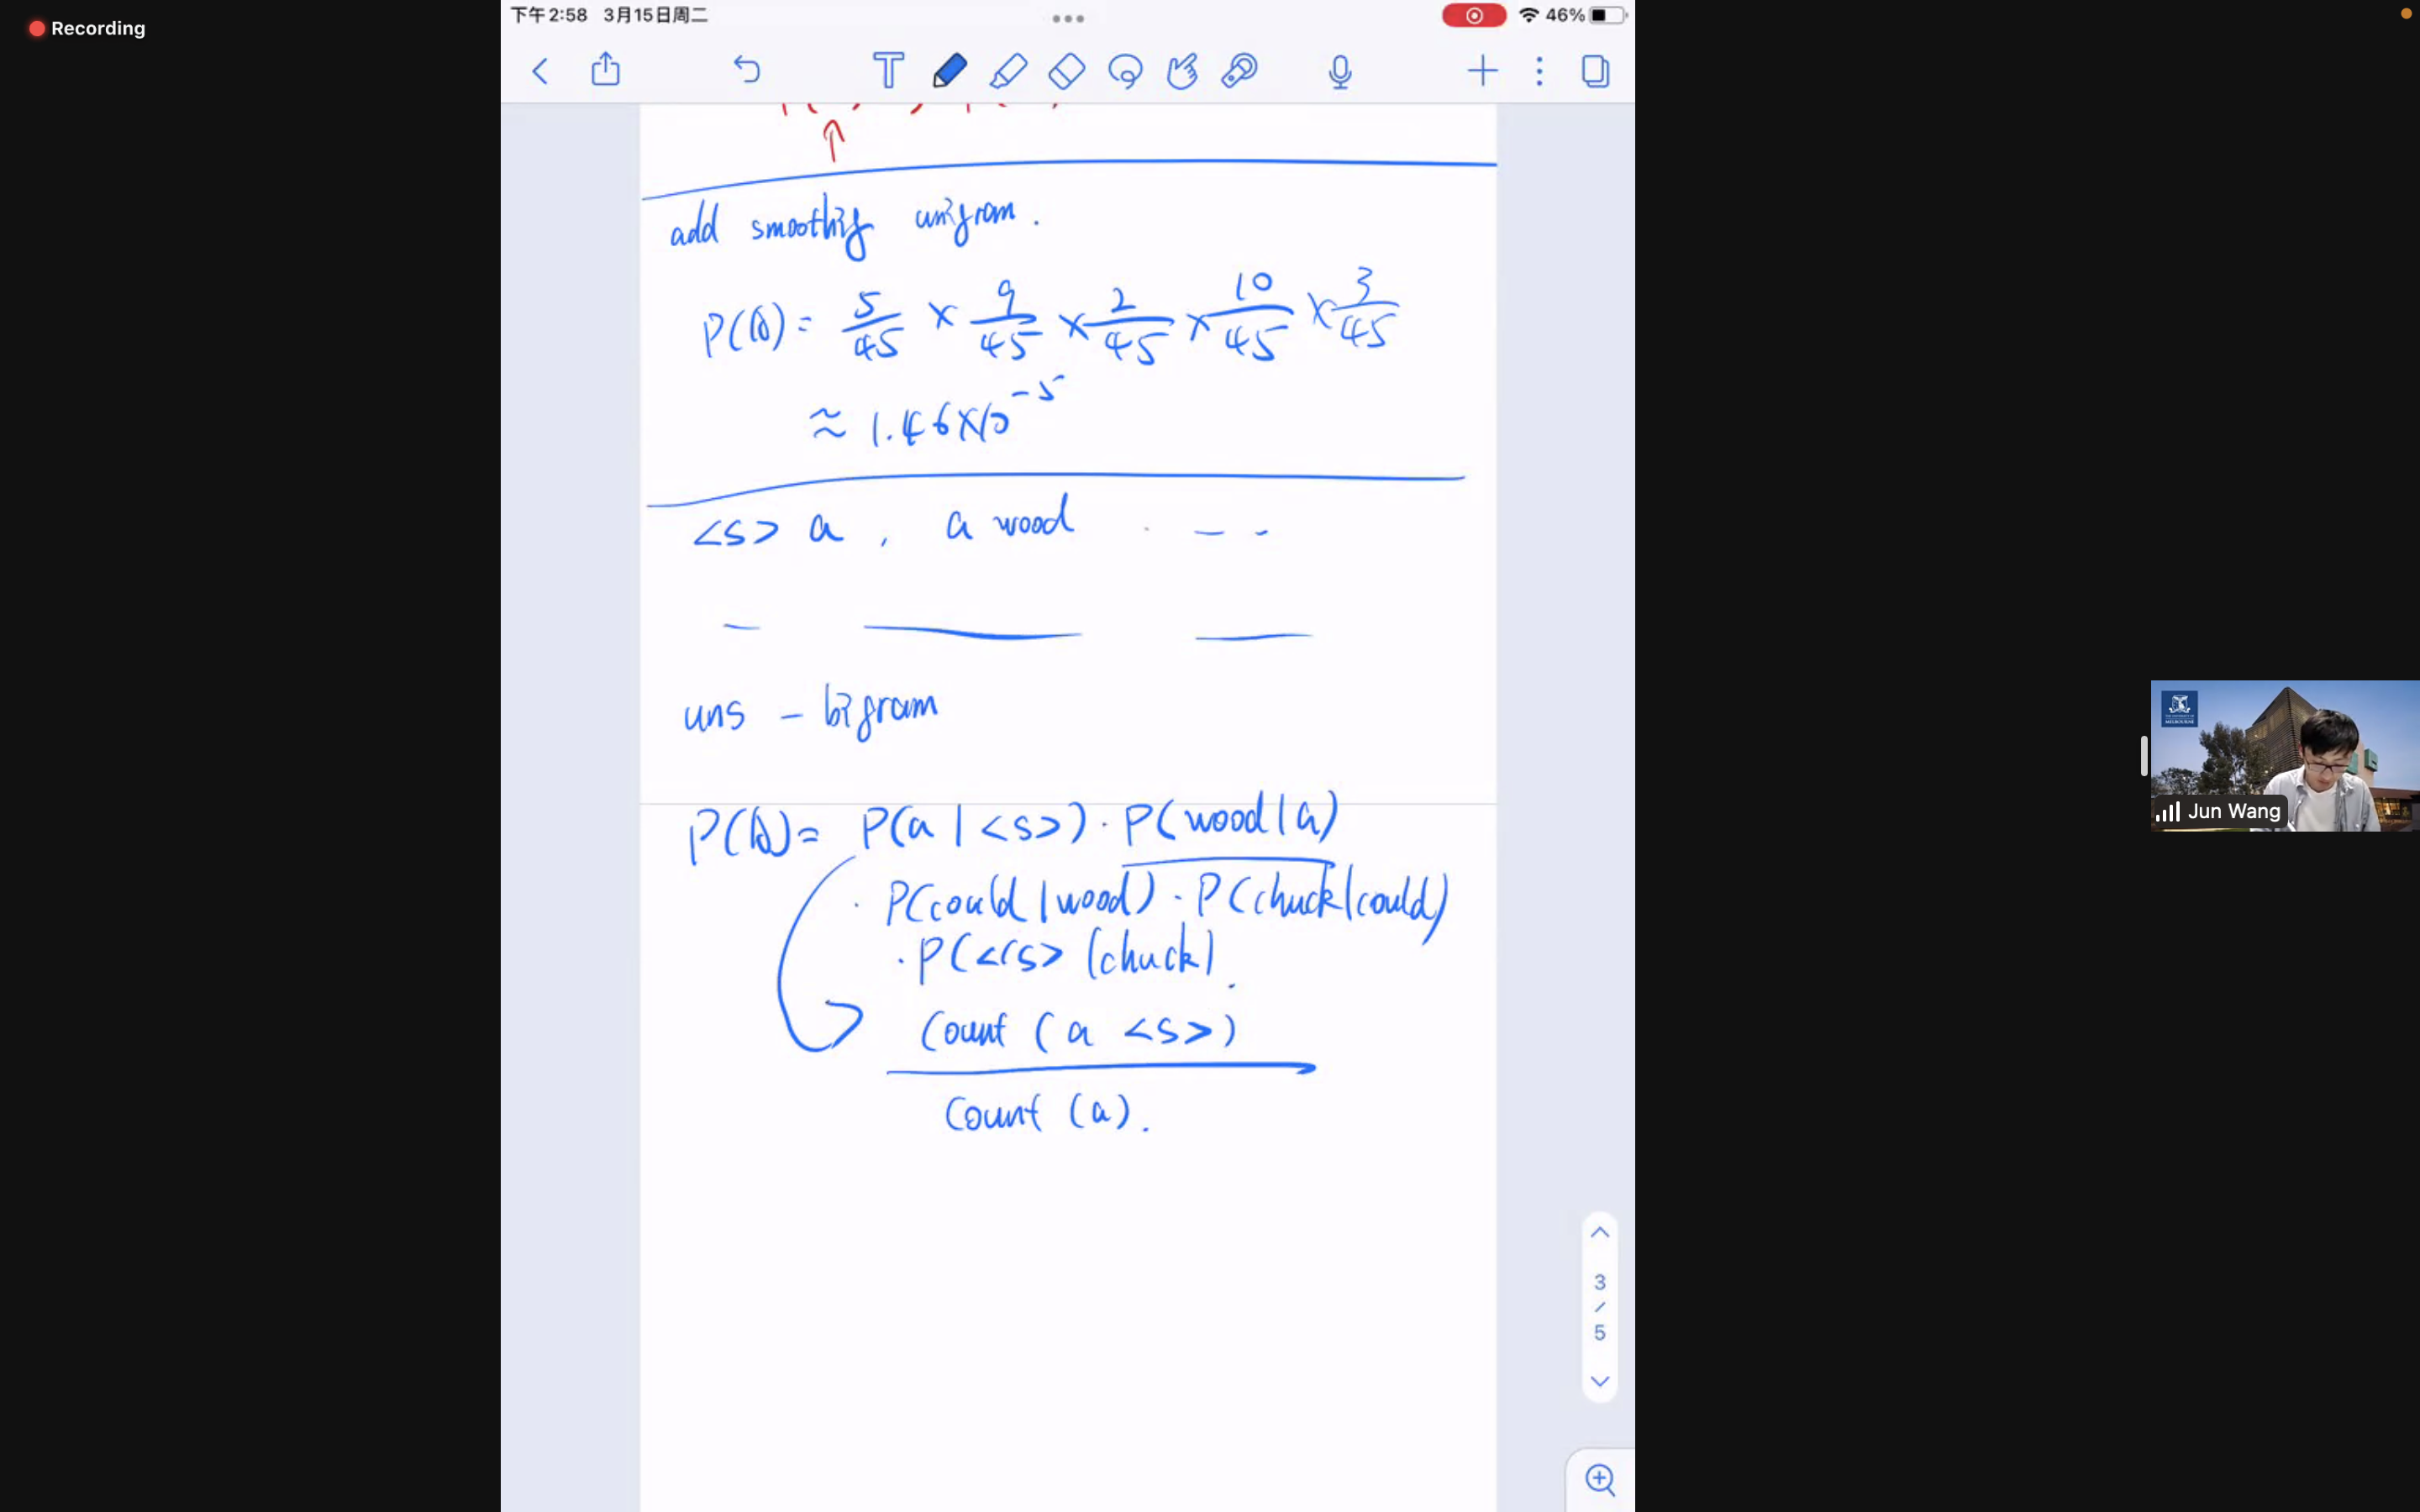 Recording
下午2:58 3月15日周二
46%
add smoothig unigram.
P(b) = 5/45 × 9/45 × 2/45 × 10/45 × 3/45
≈ 1.46×10^-5
<s> a , a wood . – -
uns – bigram
P(b) = P(a | <s>) · P(wood | a)
· P(could | wood) · P(chuck | could)
· P(</s> | chuck).
Count (a <s>)
Count (a).
3
/
5
MELBOURNE
Jun Wang